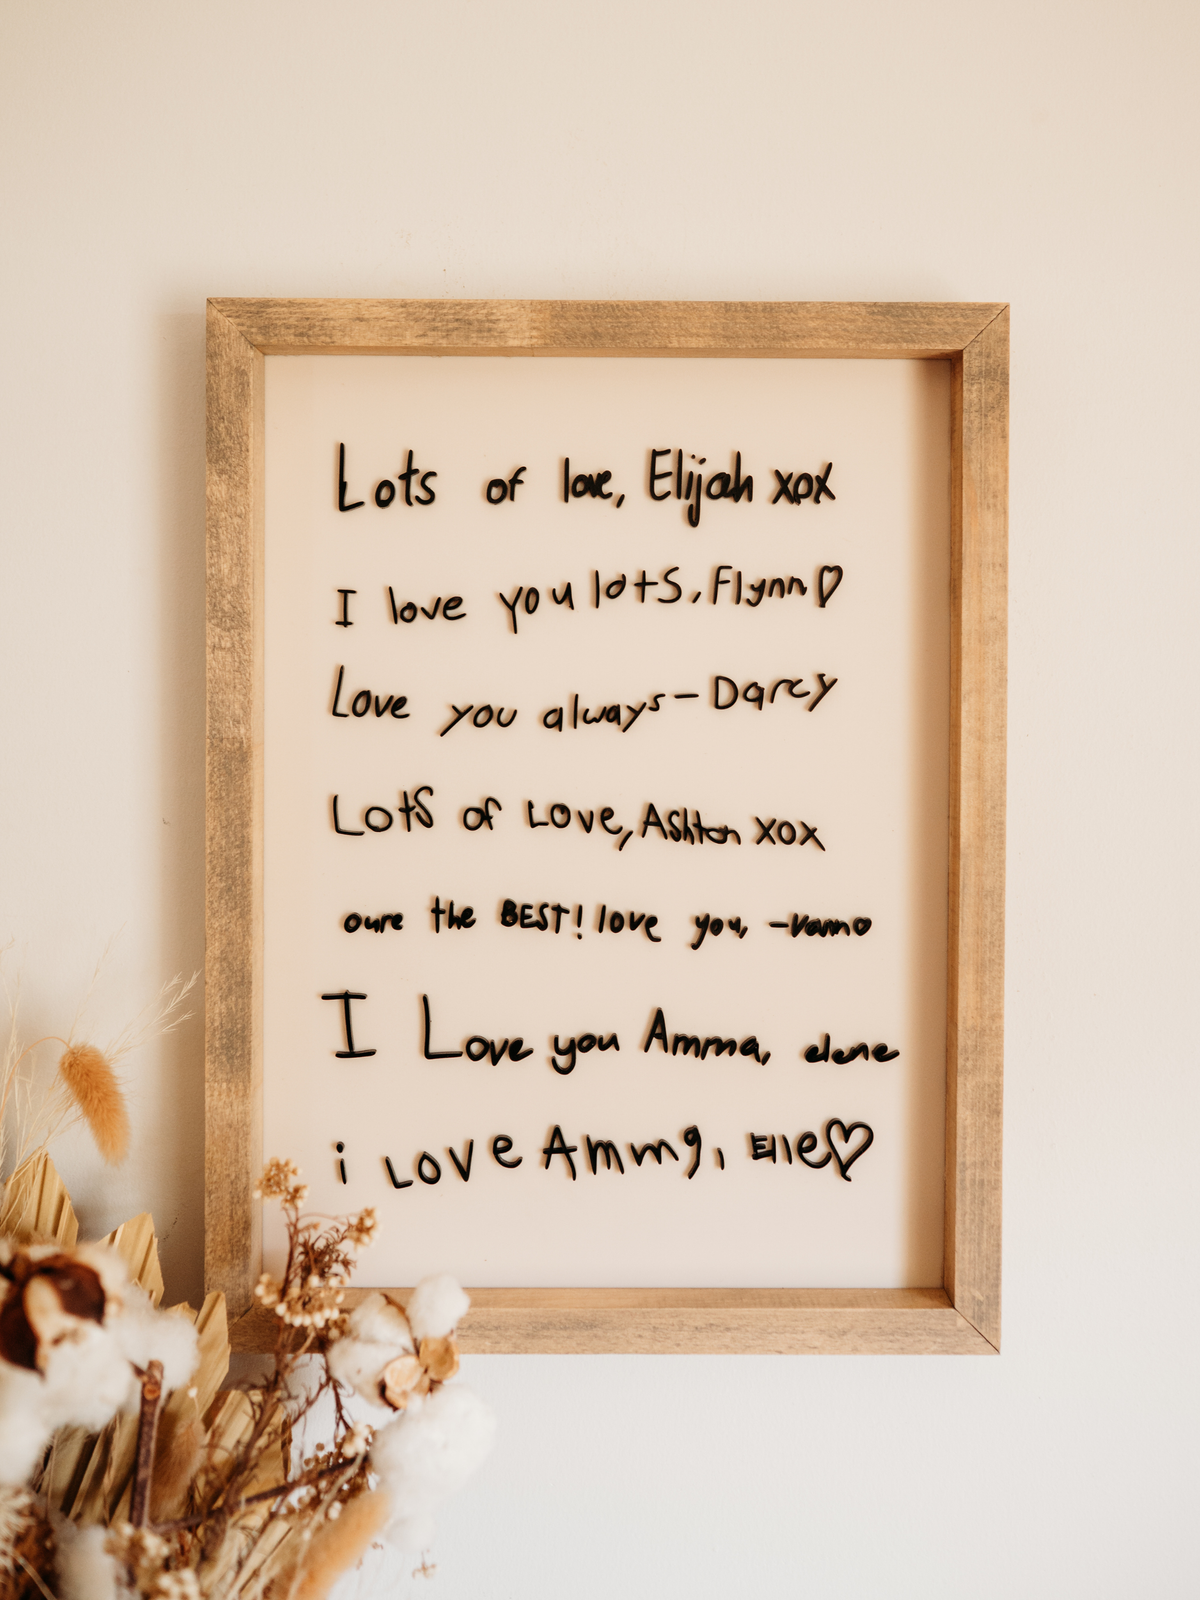 Lots of love, Elijah xox
I love you lots, Flynn ♡
Love you always - Darcy
Lots of Love, Ashton xox
oure the BEST! love you, - ♡
I Love you Amma,
i Love Amma, Elle ♡